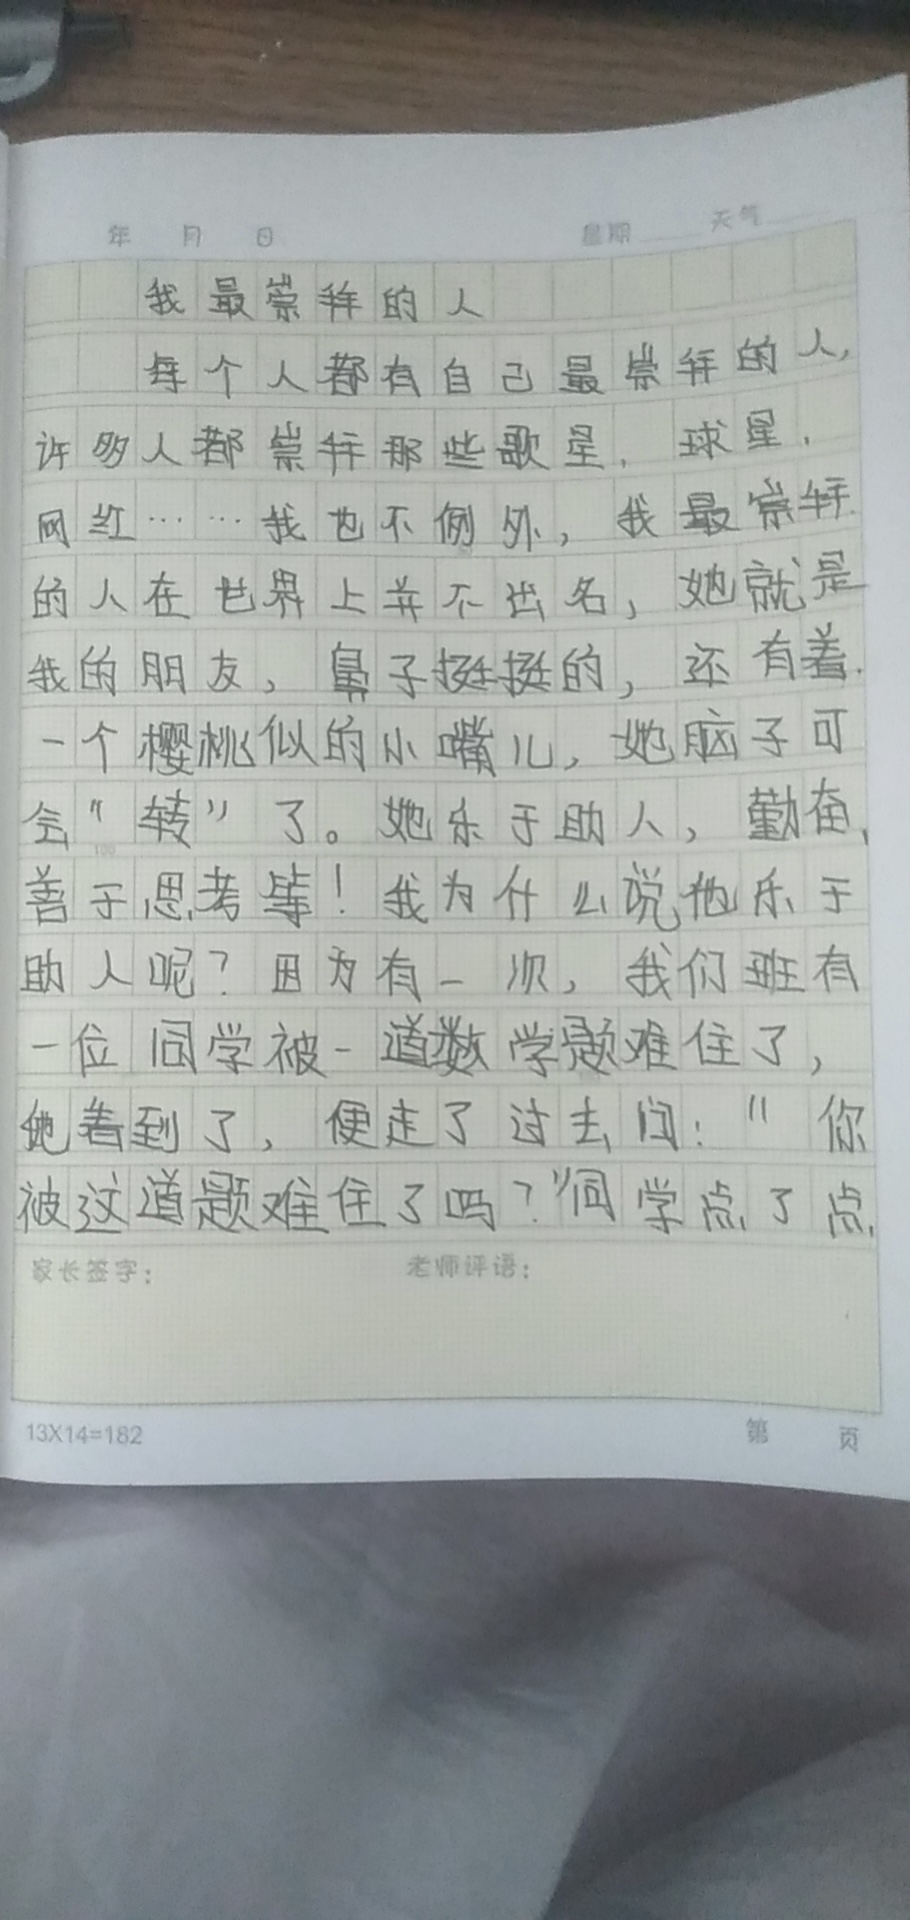 年 月 日 星期 天气
我最崇拜的人
每个人都有自己最崇拜的人,
许多人都崇拜那些歌星、球星、
网红……我也不例外,我最崇拜
的人在世界上并不出名,她就是
我的朋友,鼻子挺挺的,还有着
一个樱桃似的小嘴儿,她脑子可
会“转”了。她乐于助人,勤奋、
善于思考等!我为什么说他乐于
助人呢?因为有一次,我们班有
一位同学被一道数学题难住了,
她看到了,便走了过去问:“你
被这道题难住了吗?”同学点了点
家长签字: 老师评语:
13X14=182 第 页